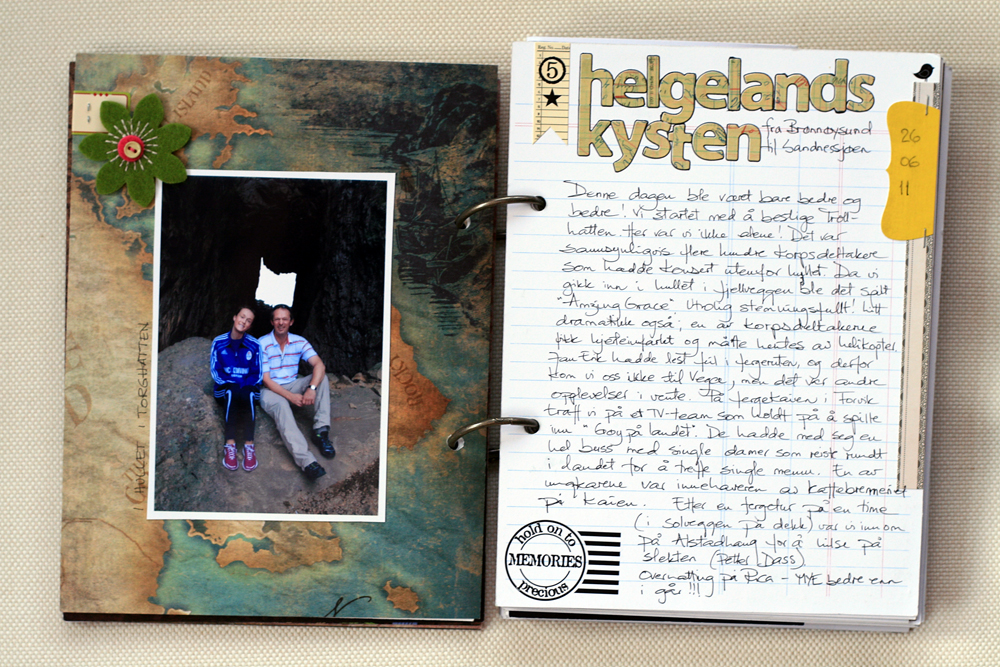 ISLAND
I HULLET I TORGHATTEN
5
helgelands
kysten
fra Brønnøysund
til Sandnessjøen
26
06
11
Denne dagen ble været bare bedre og
bedre! Vi startet med å bestige Troll-
hatten. Her var vi ikke alene! Det var
sannsynligvis flere hundre korpsdeltakere
som hadde konsert utenfor hullet. Da vi
gikk inn i hullet i fjellveggen ble det spilt
"Amazing Grace" Utrolig stemningsfullt! Litt
dramatikk også; en av korpsdeltakerne
fikk hjerteinfarkt og måtte hentes av helikopter.
Jan Erik hadde lest feil i fergeruten, og derfor
kom vi oss ikke til Vega, men det var andre
opplevelser i vente. På fergekaien i Forvik
traff vi på et TV-team som holdt på å spille
inn "Gøy på landet". De hadde med seg en
hel buss med single damer som reiste rundt
i landet for å treffe single menn. En av
ungkarene var innehaveren av kaffebrenneriet
på kaien. Etter en fergetur på en time
(i solveggen på dekk) var vi innom
på Alstadhaug for å hilse på
slekten (Petter Dass)
Overnatting på Rica - MYE bedre enn
i går!!!
hold on to
MEMORIES
precious